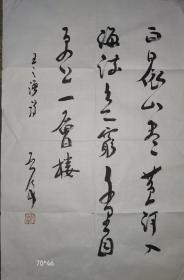 白日依山尽黄河入
海流欲窮千里目
更上一層樓
王之涣诗
70*46